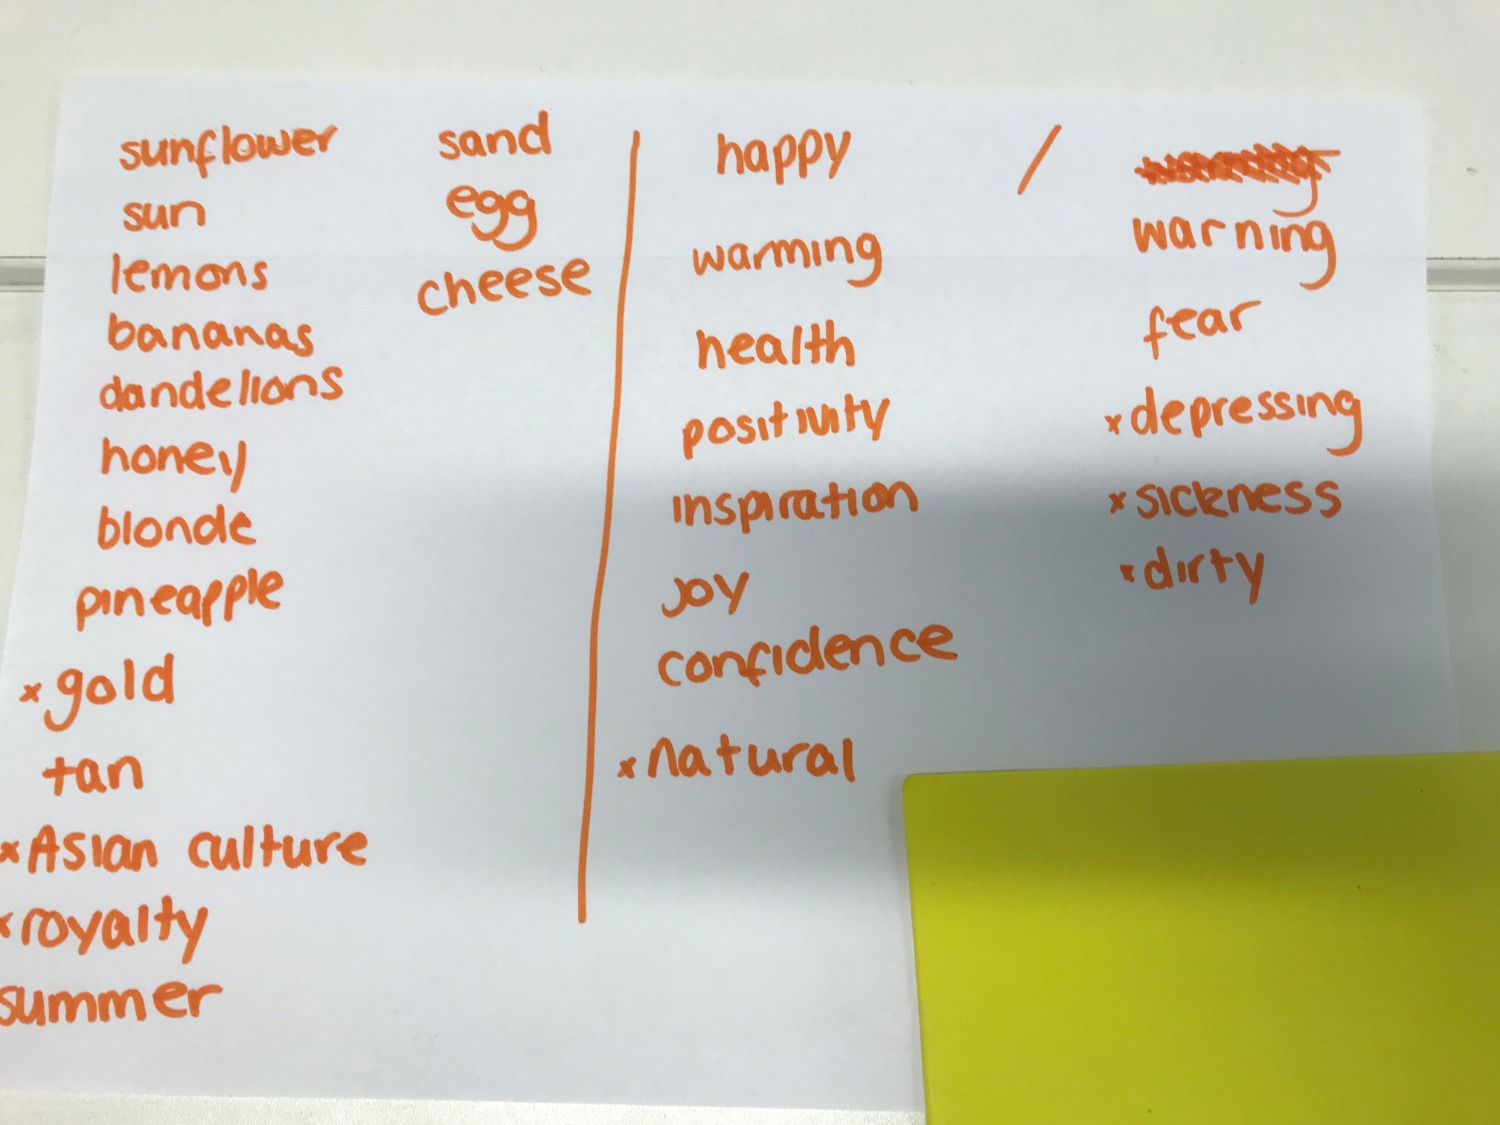 sunflower
sun
lemons
bananas
dandelions
honey
blonde
pineapple
×gold
tan
×Asian culture
×royalty
summer
sand
egg
cheese
happy /
warming
health
positivity
inspiration
joy
confidence
×natural
warning
fear
×depressing
×sickness
×dirty